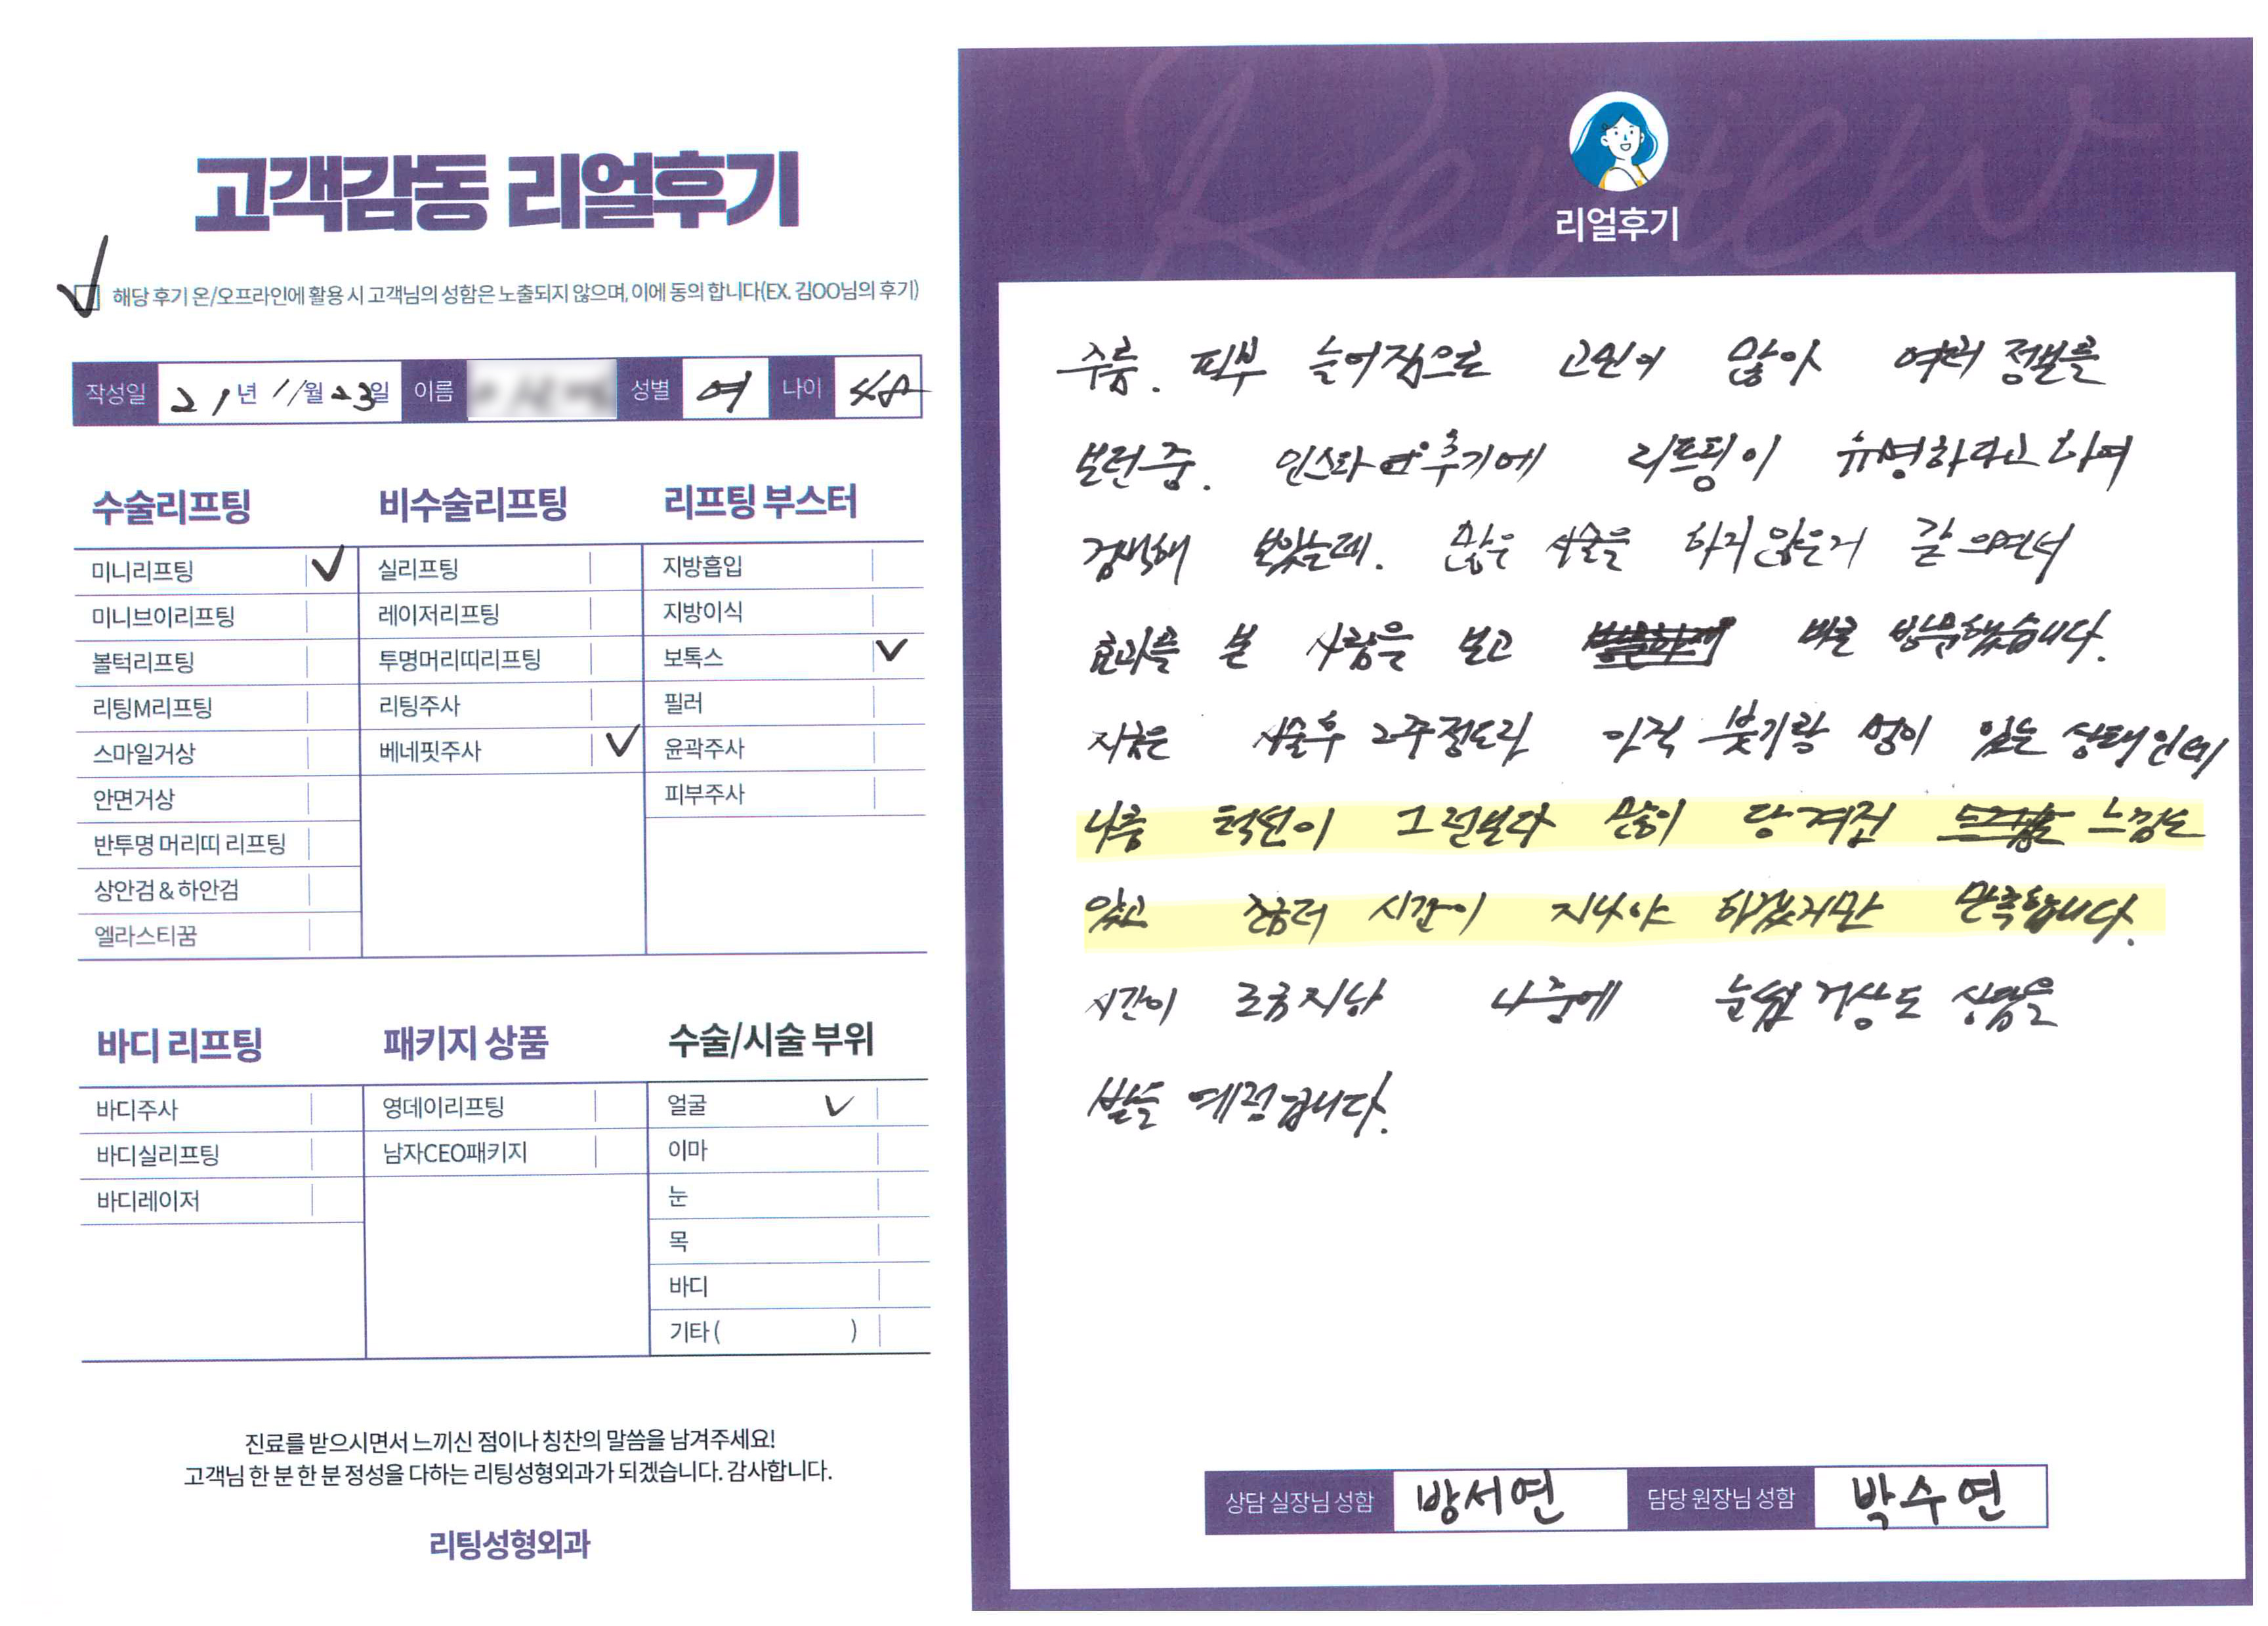 고객감동 리얼후기
해당 후기 온/오프라인에 활용 시 고객님의 성함은 노출되지 않으며, 이에 동의 합니다(EX. 김OO님의 후기)
작성일 21년 11월 23일 이름 성별 여 나이
수술리프팅
미니리프팅
미니브이리프팅
볼턱리프팅
리팅M리프팅
스마일거상
안면거상
반투명 머리띠 리프팅
상안검 & 하안검
엘라스티꿈
비수술리프팅
실리프팅
레이저리프팅
투명머리띠리프팅
리팅주사
베네핏주사
리프팅 부스터
지방흡입
지방이식
보톡스
필러
윤곽주사
피부주사
바디 리프팅
바디주사
바디실리프팅
바디레이저
패키지 상품
영데이리프팅
남자CEO패키지
수술/시술 부위
얼굴
이마
눈
목
바디
기타 ( )
진료를 받으시면서 느끼신 점이나 칭찬의 말씀을 남겨주세요!
고객님 한 분 한 분 정성을 다하는 리팅성형외과가 되겠습니다. 감사합니다.
리팅성형외과
Review
리얼후기
주름. 피부 늘어짐으로 고민이 많아 여러 정보를
보던중. 인스타 후기에 리프팅이 유명하다고 하여
검색해 보았는데. 많은 시술을 하지 않은거 같으면서
효과를 본 사람을 보고 바로 방문했습니다.
지금은 시술후 2주정도라 아직 붓기랑 멍이 있는 상태인데
나름 턱선이 그전보다 많이 당겨진 느낌도
있고 좀더 시간이 지나야 하겠지만 만족합니다.
시간이 조금지나 나중에 눈썹 거상도 상담을
받을 예정입니다.
상담 실장님 성함 방서연 담당 원장님 성함 박수연